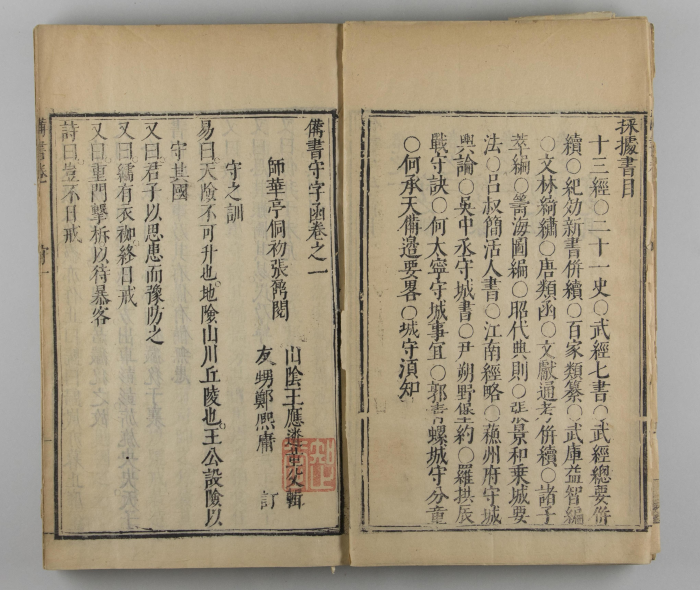 採據書目
十三經○二十一史○武經七書○武經總要併
續○紀効新書併續○百家類纂○武庫益智編
○文林綺繡○唐類函○文獻通考併續○諸子
萃編○籌海圖編○昭代典則○張景和乗城要
法○吕叔簡活人書○江南經略○蘓州府守城
輿論○吳中丞守城書○尹朔野堡約○羅拱辰
戰守訣○何太寧守城事宜○郭青螺城守分童
○何承天備邉要畧○城守湏知
備書守字函卷之一
師華亭侗初張鼐閱
山陰王應遴菫父輯
友甥鄭熈庸 訂
守之訓
易曰天險不可升也地險山川丘陵也王公設險以
守其國
又曰君子以思患而豫防之
又曰繻有衣袽終日戒
又曰重門擊柝以待暴客
詩曰豈不日戒
備書卷一